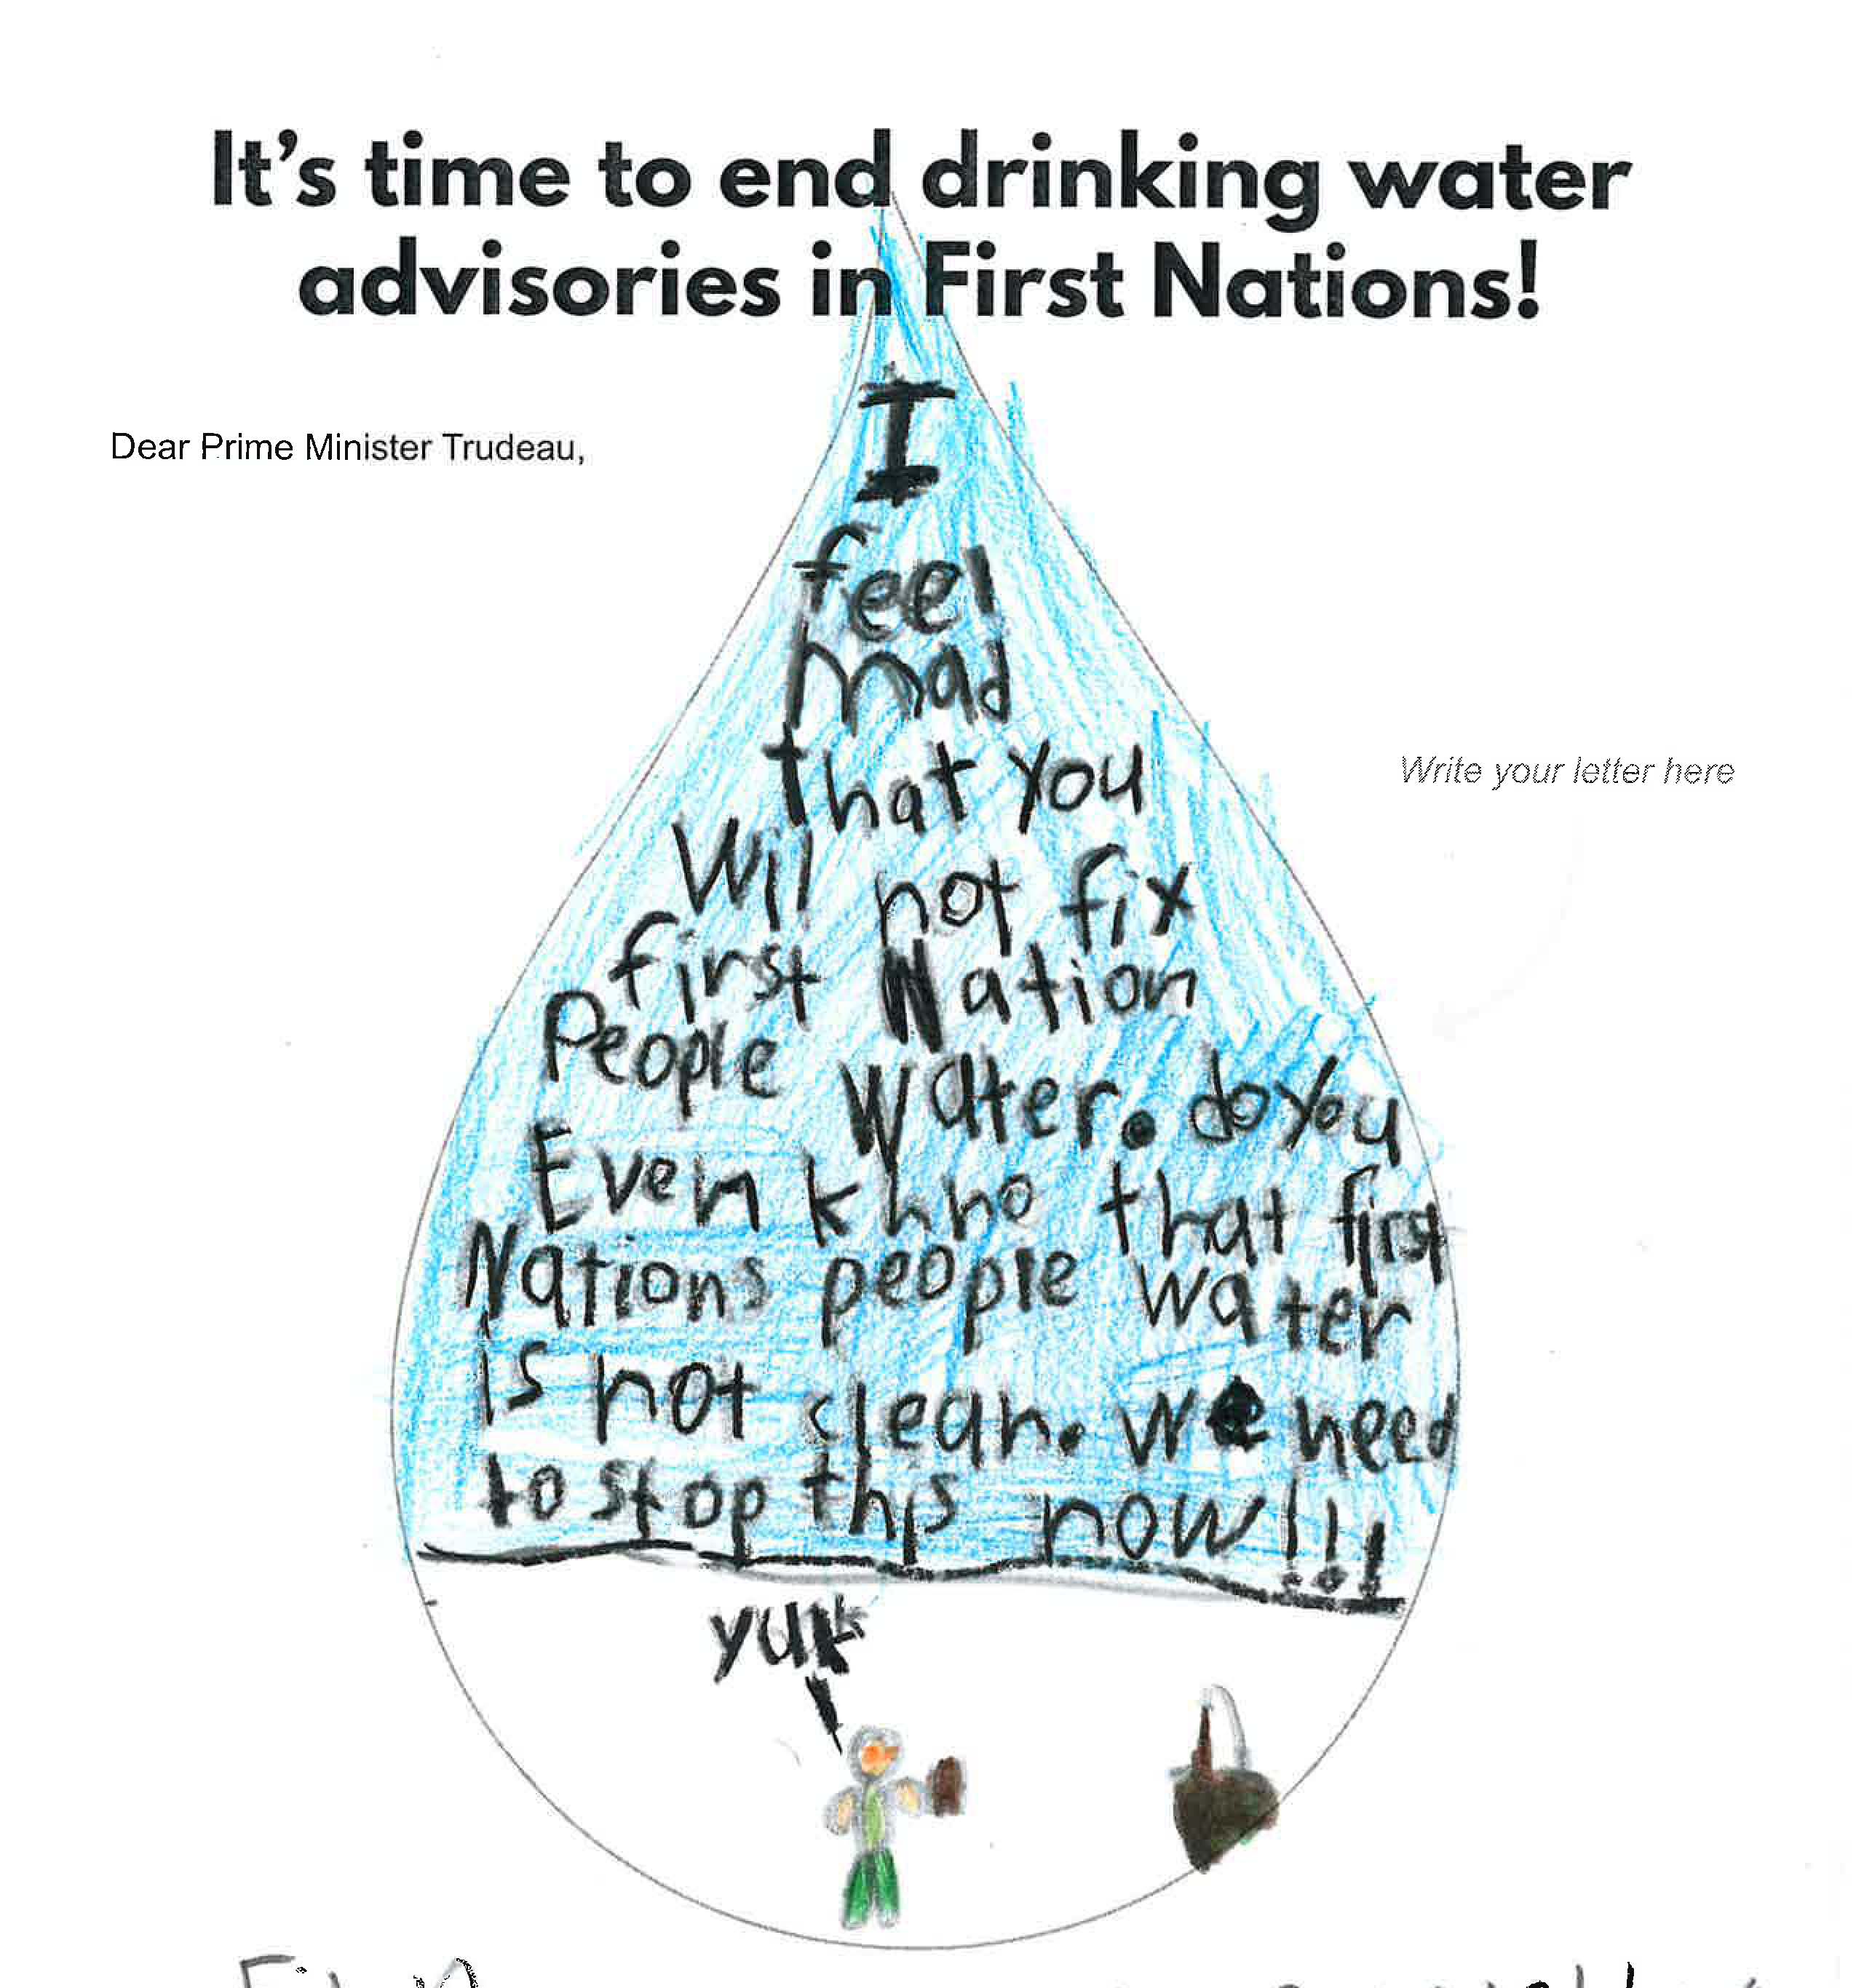 It's time to end drinking water
advisories in First Nations!
Dear Prime Minister Trudeau,
I
feel
mad
that you
Write your letter here
Wil not fix
first Nation
People Water. do you
Even khno that first
Nations people water
is not clean. we need
to stop this now!!!
yuk